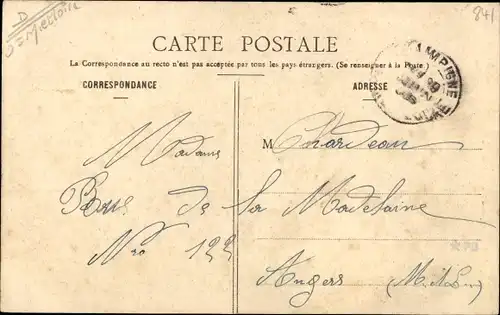 841
D
CARTE POSTALE
La Correspondance au recto n'est pas acceptée par tous les pays étrangers. (Se renseigner à la Poste)
CORRESPONDANCE
ADRESSE
Madame
M Chardeau
Rue de la Madelaine
Nro 122
Angers (M.&L.)